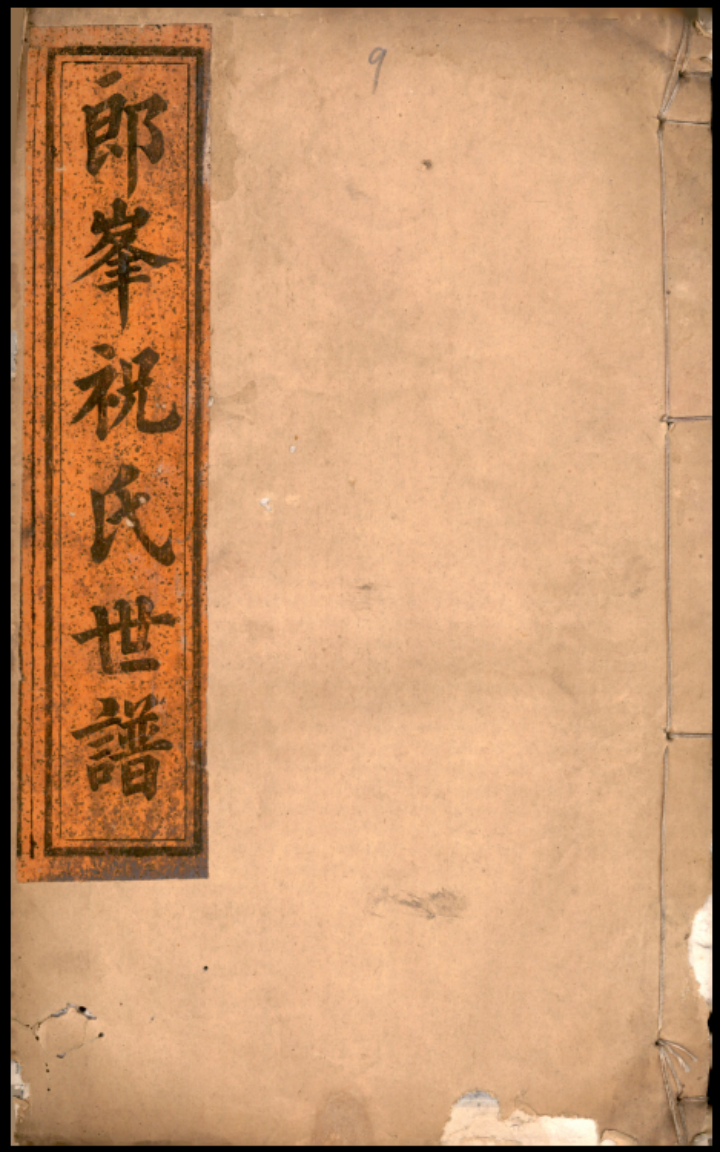 9
郎峯祝氏世譜